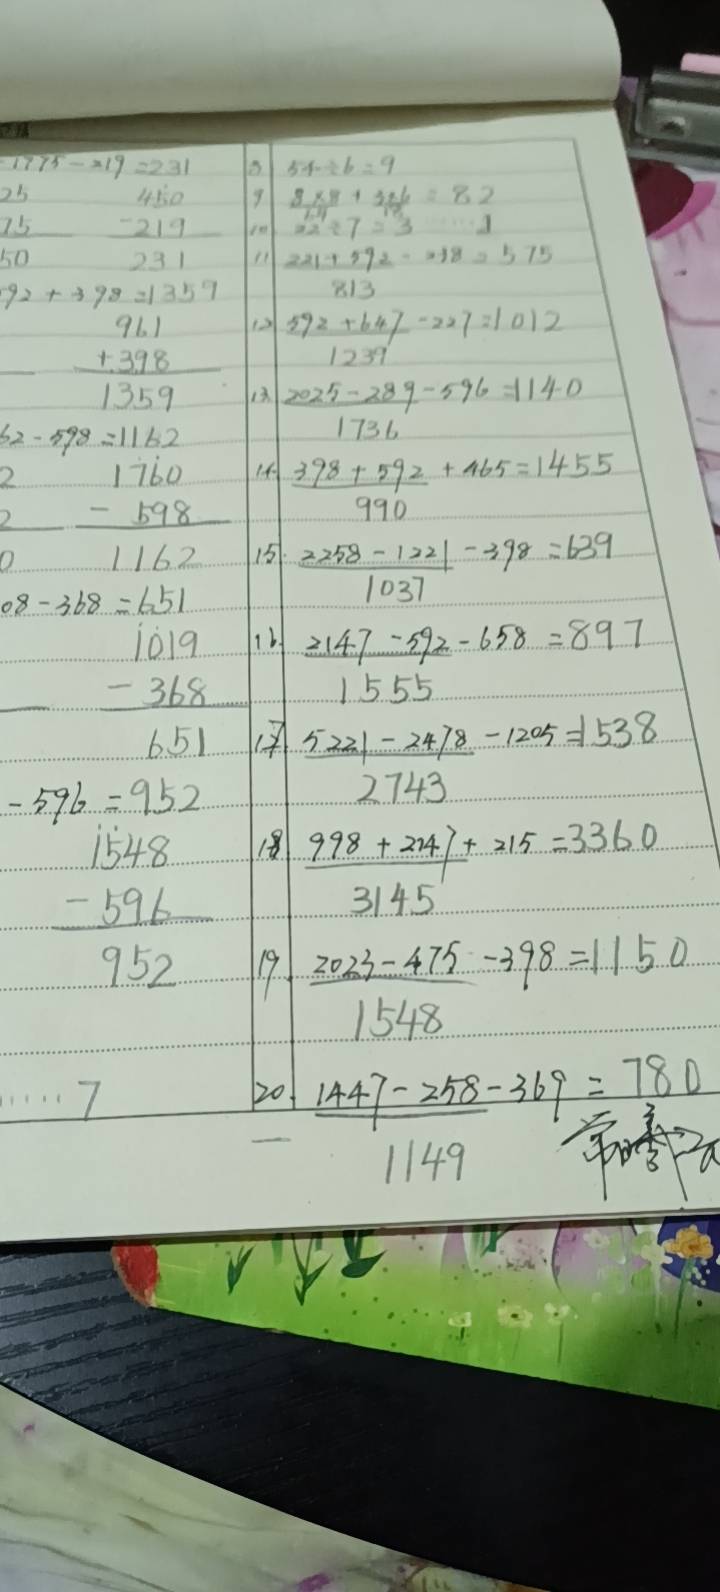 1775-219=231
25 450
75 -219
50 231
592+398=1359
961
+398
1359
62-598=1162
2 1760
2 -598
0 1162
08-368=651
1019
-368
651
-596=952
1548
-596
952
……7
8 54÷6=9
9 8×8+3×6=82
64 18
10 22÷7=3……1
11 221+592-238=575
813
12 592+647-227=1012
1239
13 2025-289-596=1140
1736
14 398+592+465=1455
990
15. 2258-1221-398=639
1037
16. 2147-592-658=897
1555
17 5221-2478-1205=1538
2743
18 998+2147+215=3360
3145
19. 2023-475-398=1150
1548
20. 1447-258-369=780
1149